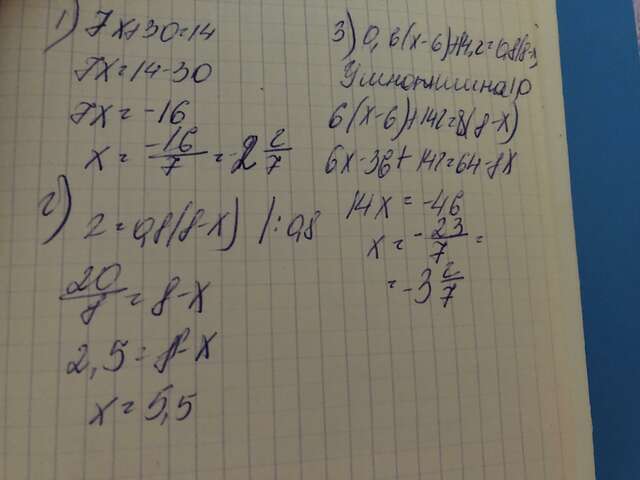 1) 7x+30=14
7x=14-30
7x=-16
x=-16/7=-2 2/7
2) 2=0,8(8-x) |:0,8
20/8=8-x
2,5=8-x
x=5,5
3) 0,6(x-6)+14,2=0,8(8-x)
Умножим на 10
6(x-6)+142=8(8-x)
6x-36+142=64-8x
14x=-46
x=-23/7=
=-3 2/7